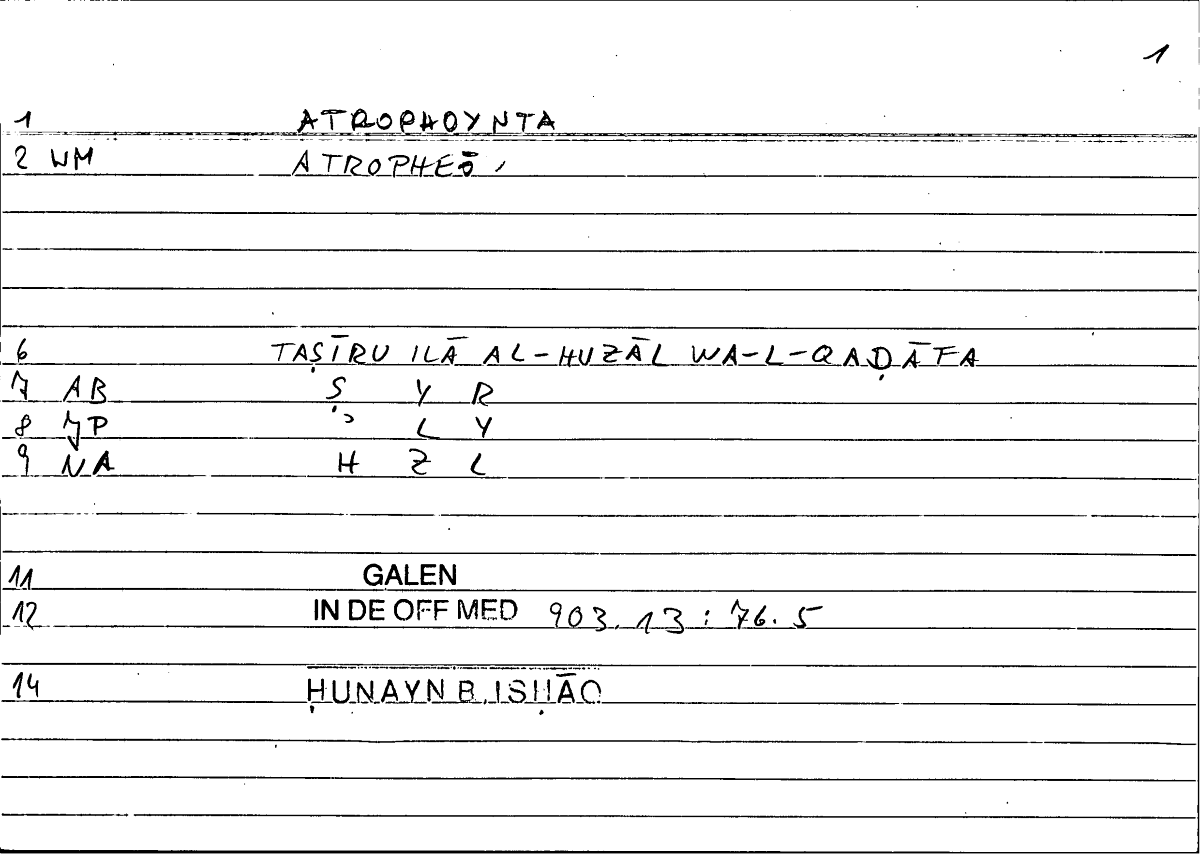 1
1 ATROPHOYNTA
2 WM ATROPHEŌ,
6 TAṢĪRU ILĀ AL-HUZĀL WA-L-QAḌĀFA
7 AB Ṣ Y R
8 JP ʾ L Y
9 NA H Z L
11 GALEN
12 IN DE OFF MED 903.13:76.5
14 ḤUNAYN B. ISḤĀQ